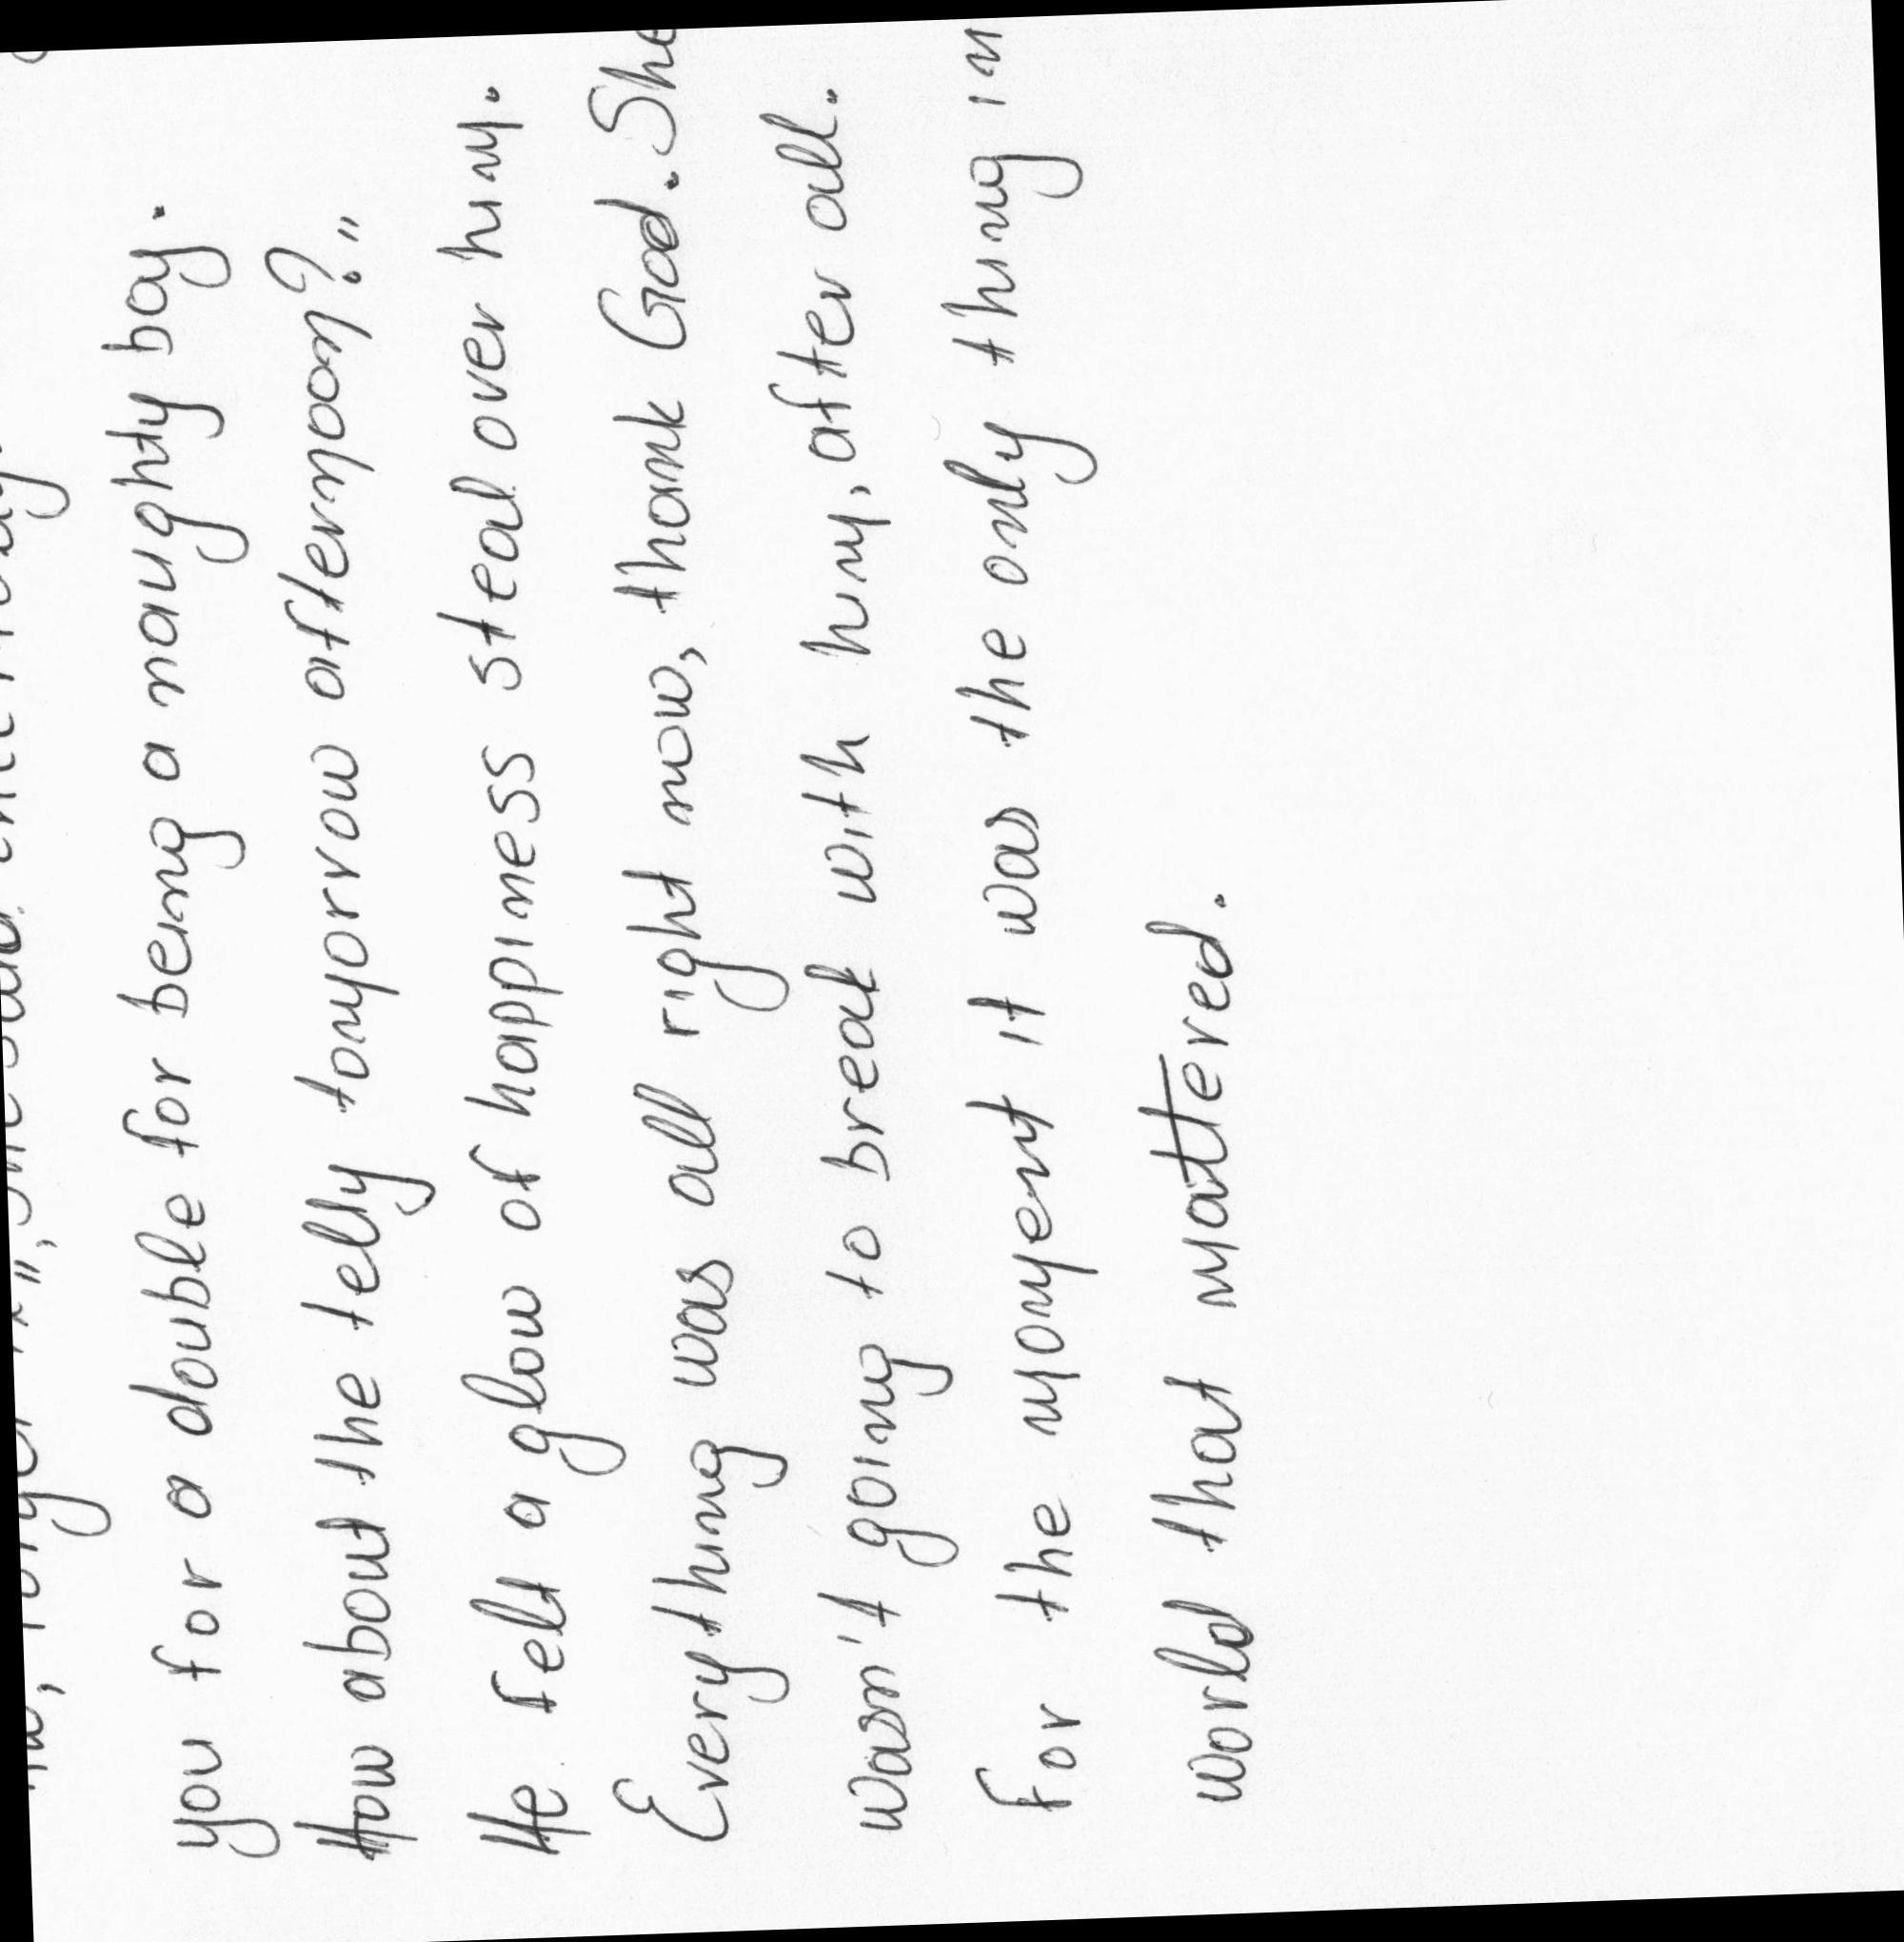 you for a double for being a naughty boy.
How about the telly tomorrow afternoon?"
He felt a glow of happiness steal over him.
Everything was all right now, thank God. She
wasn't going to break with him, after all.
For the moment it was the only thing in
world that mattered.